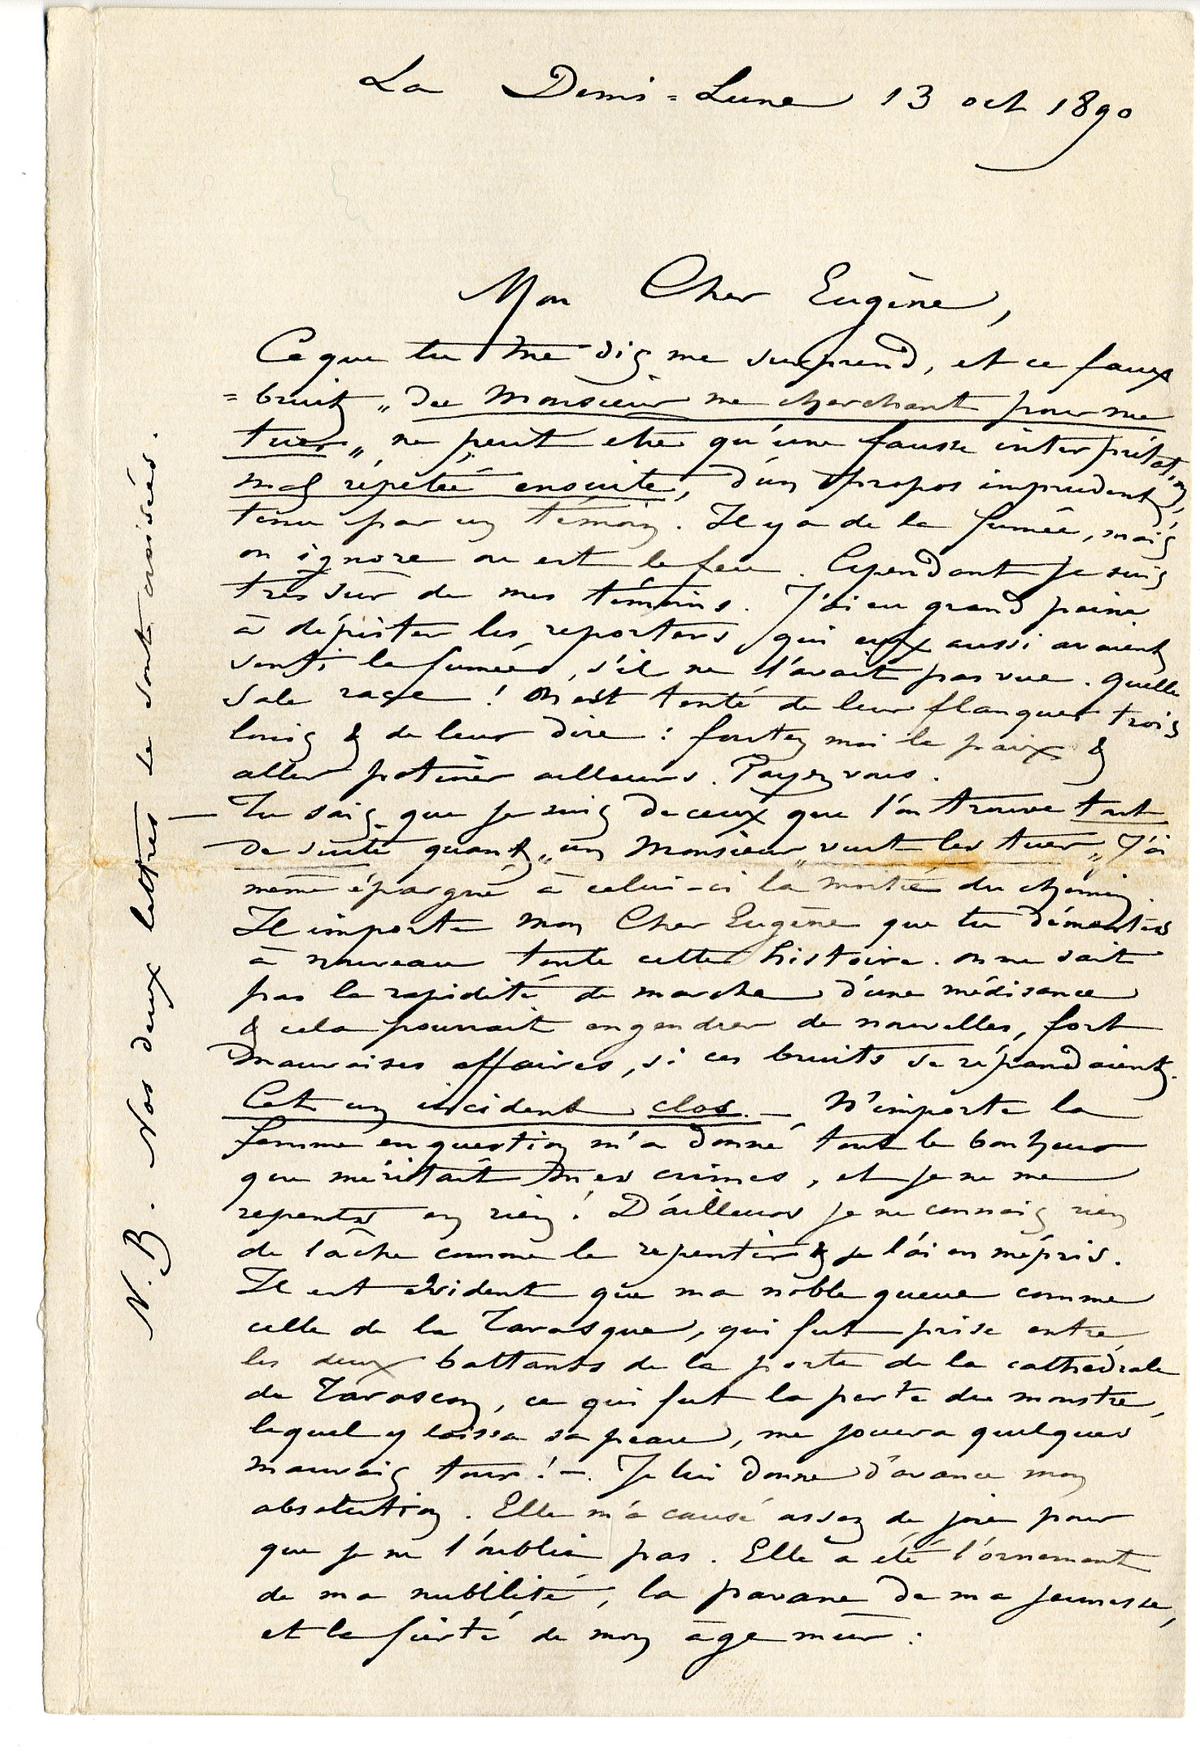 La Demi-Lune 13 oct 1890
Mon Cher Eugène,
Ce que tu me dis me surprend, et ce faux
=bruit „ du Monsieur me cherchant pour me
tuer „ ne peut etre qu'une fausse interprétation,
mal répétée ensuite, d'un propos imprudent,
tenu par un témoin. Il y a de la fumée, mais
on ignore ou est le feu. Cependant je suis
tres sûr de mes témoins. J'ai eu grand peine
à dépister les reporters qui eux aussi avaient
senti la fumée, s'il ne l'avait pas vue. Quelle
sale race ! On est tenté de leur flanquer trois
louis & de leur dire : foutez moi la paix &
aller potiner ailleurs. Payez vous.
— Tu sais que je suis de ceux que l'on trouve tout
de suite quand „ un Monsieur „ veut les tuer „ J'ai
même épargné à celui-ci la moitié du chemin.
Il importe mon Cher Eugène que tu démentes
à nouveau toute cette histoire. On ne sait
pas la rapidité de marche d'une médisance
& cela pourrait engendrer de nouvelles, fort
mauvaises affaires, si ces bruits se répandaient.
Cet un incident clos. — N'importe la
femme en question m'a donné tout le bonheur
que méritait mes crimes, et je ne me
repents en rien ! D'ailleurs je ne connais rien
de lâche comme le repentir & je l'ai en mépris.
Il est évident que ma noble queue comme
celle de la Tarasque, qui fut prise entre
les deux battants de la porte de la cathédrale
de Tarascon, ce qui fut la perte du monstre,
lequel y laissa sa peau, me jouera quelques
mauvais tour ! —. Je lui donne d'avance mon
absolution. Elle m'a causé assez de joie pour
que je ne l'oublie pas. Elle a été l'ornement
de ma nubilité, la pavane de ma jeunesse,
et la fierté de mon âge mûr :
N.B. Nos deux lettres se sont croisées.